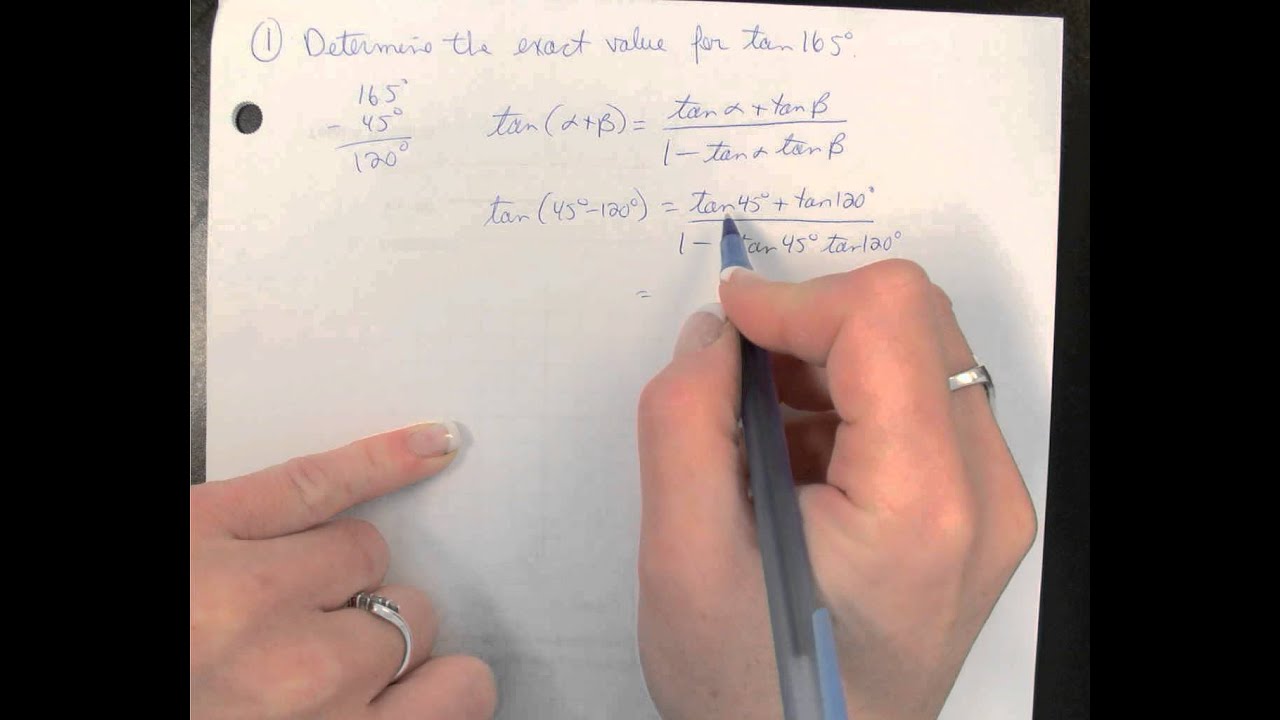 ① Determine the exact value for tan 165°.
165°
- 45°
120°
tan(α+β) = tanα + tanβ
1 - tanα tanβ
tan(45°-120°) = tan45° + tan120°
1 - tan45° tan120°
=